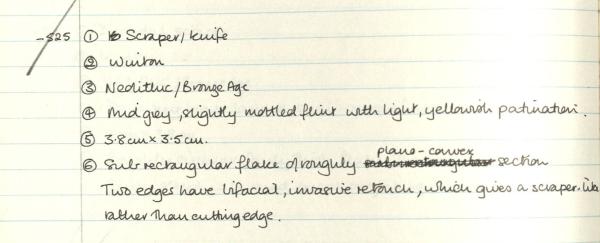 -S25 ① Scraper/knife
② Winton
③ Neolithic/Bronze Age
④ Mid grey, slightly mottled flint with light, yellowish patination.
⑤ 3.8cm x 3.5cm.
plano-convex
⑥ Sub rectangular flake of roughly section
Two edges have bifacial, invasive retouch, which gives a scraper-like
rather than cutting edge.